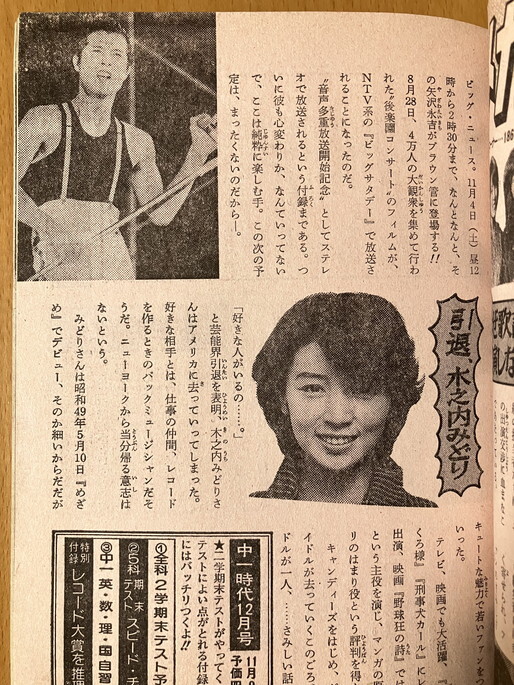 ビッグ・ニュース。11月4日(土)昼12
時から2時30分まで、なんとなんと、そ
の矢沢永吉がブラウン管に登場する!!
8月28日、4万人の大観衆を集めて行わ
れた"後楽園コンサート"のフィルムが、
NTV系の『ビッグサタデー』で放送さ
れることになったのだ。
"音声多重放送開始記念"としてステレ
オで放送されるという付録まである。つ
いに彼も心変わりか、なんていってない
で、ここは純粋に楽しむ手。この次の予
定は、まったくないのだから―。
引退、木之内みどり
「好きな人がいるの……。」
と芸能界引退を表明、木之内みどりさ
んはアメリカに去っていってしまった。
好きな相手とは、仕事の仲間、レコード
を作るときのバックミュージシャンだそ
うだ。ニューヨークから当分帰る意志は
ないという。
みどりさんは昭和49年5月10日『めざ
め』でデビュー、そのか細いからだだが
キュートな魅力で若いファンを
いった。
テレビ、映画でも大活躍、『
くろ様』『刑事犬カール』に
出演、映画『野球狂の詩』では
という主役を演じ、マンガの原
りのはまり役という評判を得
キャンディーズをはじめ、
イドルが去っていくこのごろ
ドルが一人、……さみしい話
中一時代12月号
11月
予価四
★二学期末テストがやってく
テストによい点がとれる付録
にはバッチリつくよ!!
①全科2学期末テスト予
②5科期末テストスピード・チ
③中一英・数・理・国自習
特別付録 レコード大賞を推理